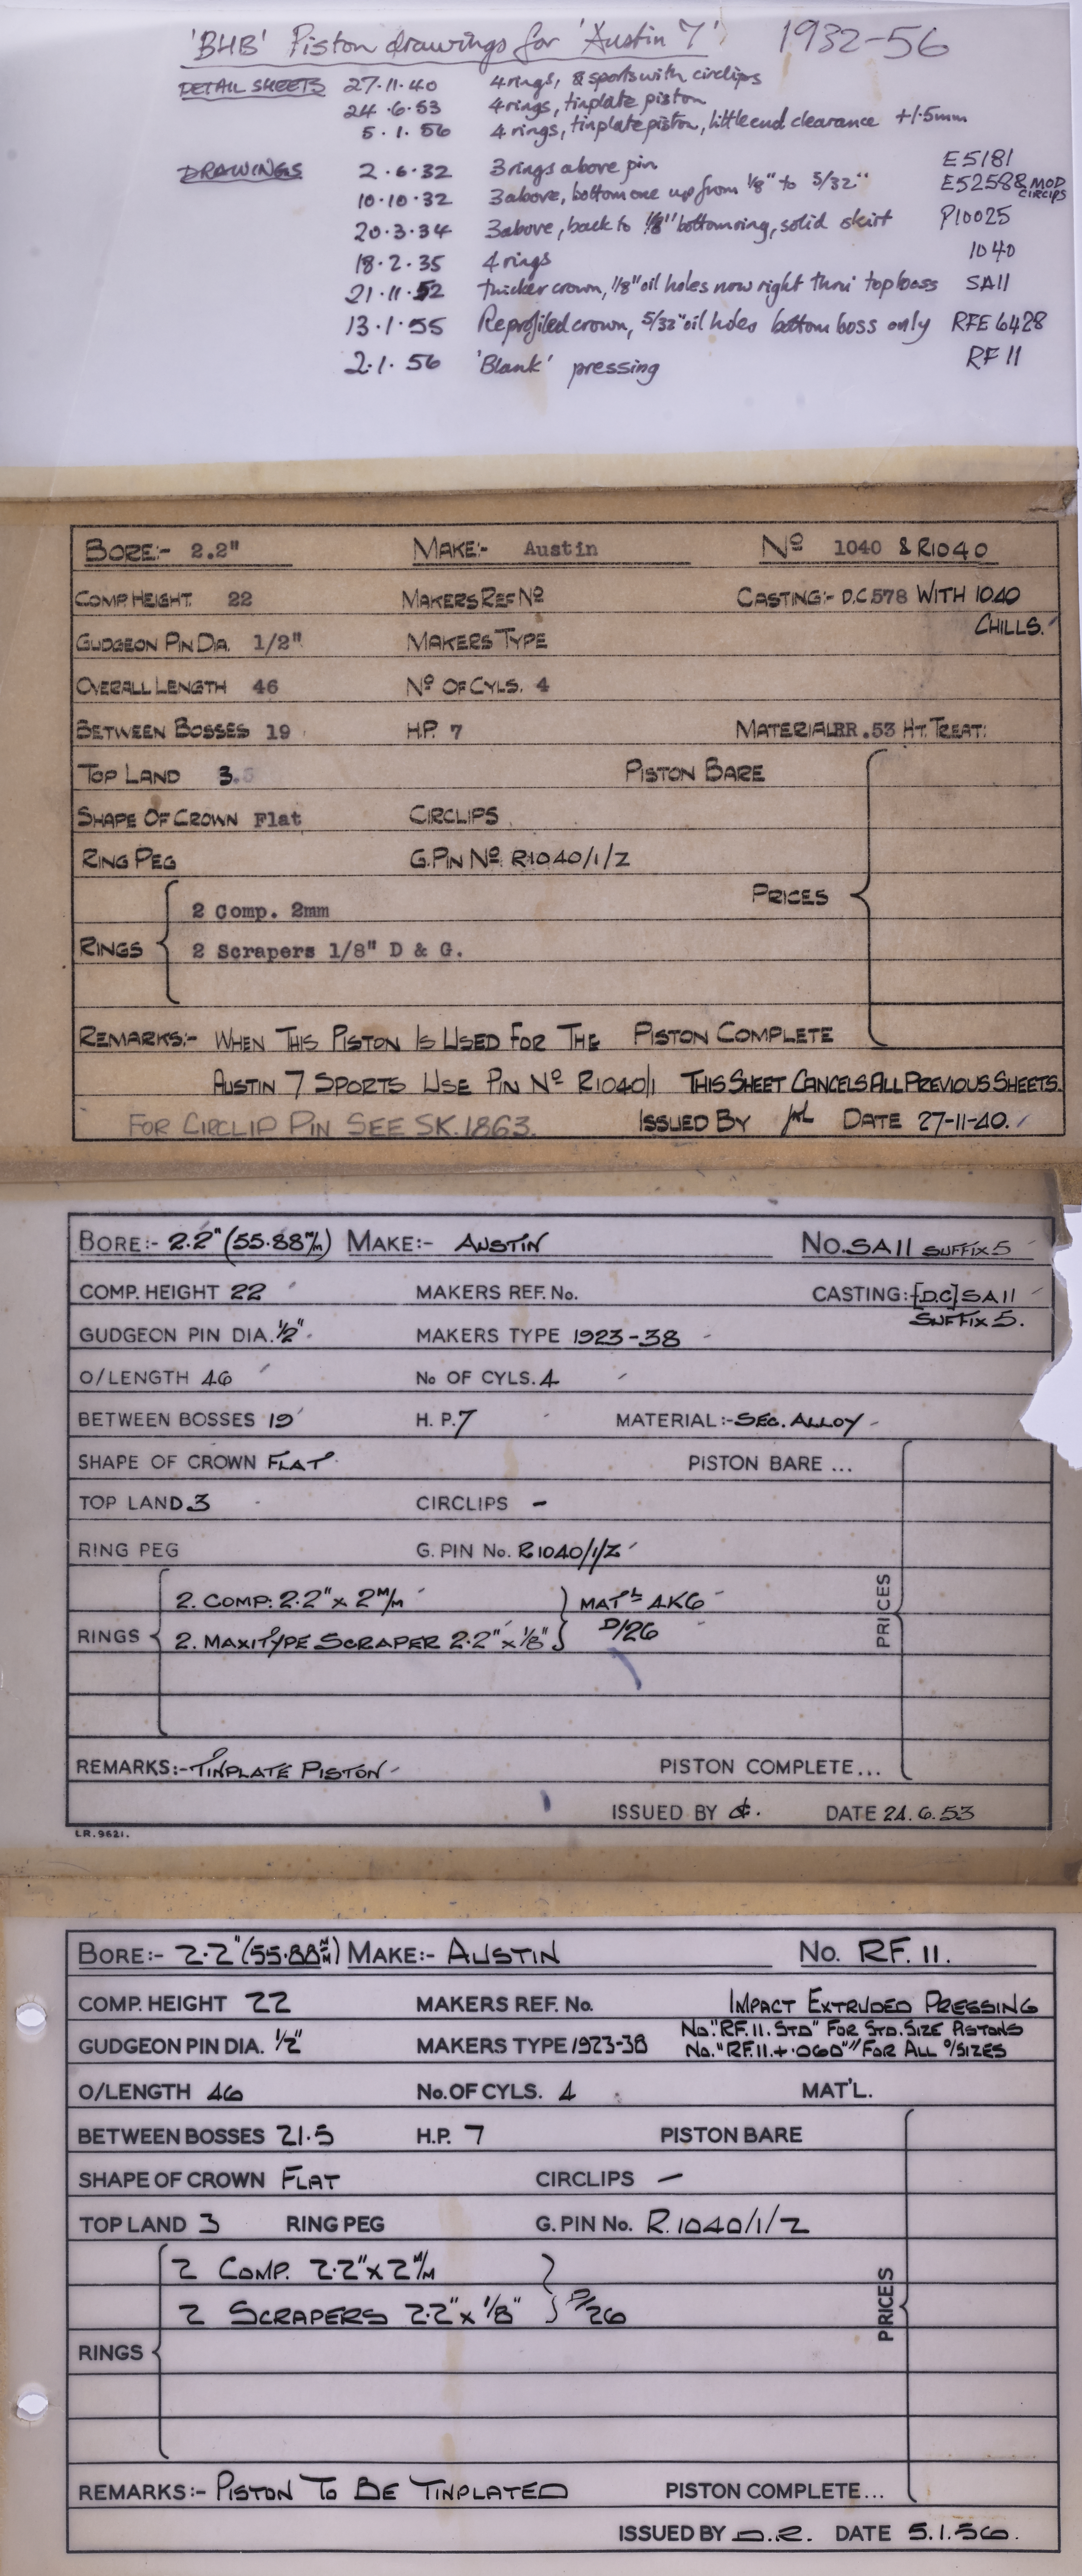 'BHB' Piston drawings for 'Austin 7' 1932-56
DETAIL SHEETS 27.11.40 4 rings, & sports with circlips
24.6.53 4 rings, tinplate piston
5.1.56 4 rings, tinplate piston, little end clearance +/.5mm
DRAWINGS 2.6.32 3 rings above pin E5181
10.10.32 3 above, bottom one up from 1/8" to 5/32" E5258 & MOD CIRCIPS
20.3.34 3 above, back to 1/8" bottom ring, solid skirt P10025
18.2.35 4 rings 1040
21.11.52 thicker crown, 1/8" oil holes now right thro' top boss SA11
13.1.55 Reprofiled crown, 5/32" oil holes bottom boss only RFE 6428
2.1.56 'Blank' pressing RF 11
BORE:- 2.2" MAKE:- Austin No 1040 & R1040
COMP. HEIGHT. 22 MAKERS REF No CASTING:- D.C 578 WITH 1040
CHILLS.
GUDGEON PIN DIA. 1/2" MAKERS TYPE
OVERALL LENGTH 46 No OF CYLS. 4
BETWEEN BOSSES 19 H.P. 7 MATERIAL RR.53 HT. TREAT:
TOP LAND 3.5 PISTON BARE
SHAPE OF CROWN Flat CIRCLIPS
RING PEG G.PIN No. R1040/1/Z
PRICES
2 Comp. 2mm
RINGS 2 Scrapers 1/8" D & G.
REMARKS:- WHEN THIS PISTON IS USED FOR THE PISTON COMPLETE
AUSTIN 7 SPORTS USE PIN No R1040/1 THIS SHEET CANCELS ALL PREVIOUS SHEETS.
FOR CIRCLIP PIN SEE SK.1863. ISSUED BY DATE 27-11-40.
BORE:- 2.2" (55.88 M/M) MAKE:- AUSTIN No. SA11 SUFFIX 5
COMP. HEIGHT 22 MAKERS REF. No. CASTING:- [D.C] SA11
SUFFIX 5.
GUDGEON PIN DIA. 1/2" MAKERS TYPE 1923-38
O/LENGTH 46 No OF CYLS. 4
BETWEEN BOSSES 19 H. P. 7 MATERIAL:- SEC. ALLOY
SHAPE OF CROWN FLAT PISTON BARE ...
TOP LAND 3 CIRCLIPS -
RING PEG G. PIN No. R1040/1/Z
2. COMP: 2.2" x 2 M/M MAT'L 4K6
RINGS 2. MAXITYPE SCRAPER 2.2" x 1/8" D/26
PRICES
REMARKS:- TINPLATE PISTON PISTON COMPLETE...
ISSUED BY DATE 24.6.53
LR.9621.
BORE:- 2.2" (55.88 M/M) MAKE:- AUSTIN No. RF. 11.
COMP. HEIGHT 22 MAKERS REF. No. IMPACT EXTRUDED PRESSING
No. "RF.11. STD" FOR STD. SIZE PISTONS
GUDGEON PIN DIA. 1/2" MAKERS TYPE 1923-38 No. "RF.11.+.060" FOR ALL O/SIZES
O/LENGTH 46 No. OF CYLS. 4 MAT'L.
BETWEEN BOSSES 21.5 H.P. 7 PISTON BARE
SHAPE OF CROWN FLAT CIRCLIPS -
TOP LAND 3 RING PEG G. PIN No. R.1040/1/Z
2 COMP. 2.2" x 2 M/M
2 SCRAPERS 2.2" x 1/8" D/26
RINGS
PRICES
REMARKS:- PISTON TO BE TINPLATED PISTON COMPLETE...
ISSUED BY D.R. DATE 5.1.56.